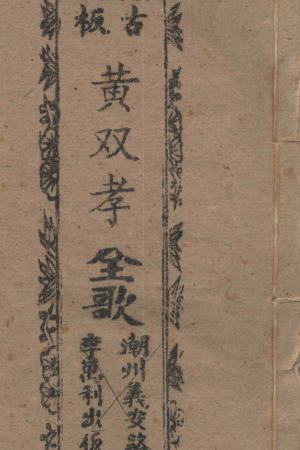 古板
黄双孝
全歌
潮州義安路
李萬利出版